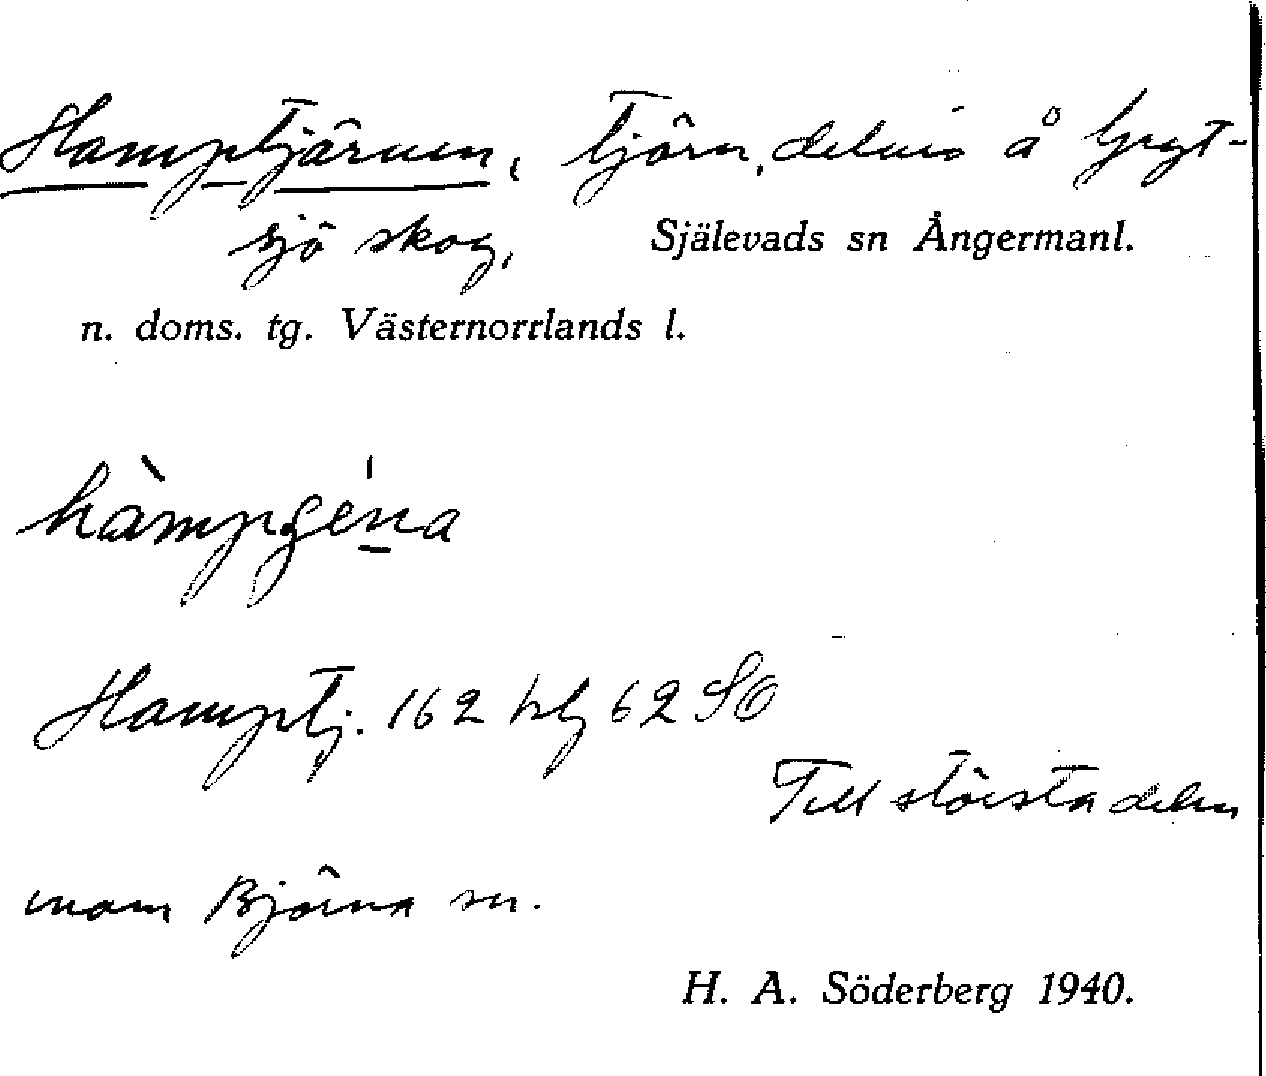 Hamptjärnen, tjärn, delvis å Gryt-
sjö skog, Själevads sn Ångermanl.
n. doms. tg. Västernorrlands l.
hàmpɟéna
Hamptj. 162 blg 62 SO
Till största delen
inom Björna sn.
H. A. Söderberg 1940.